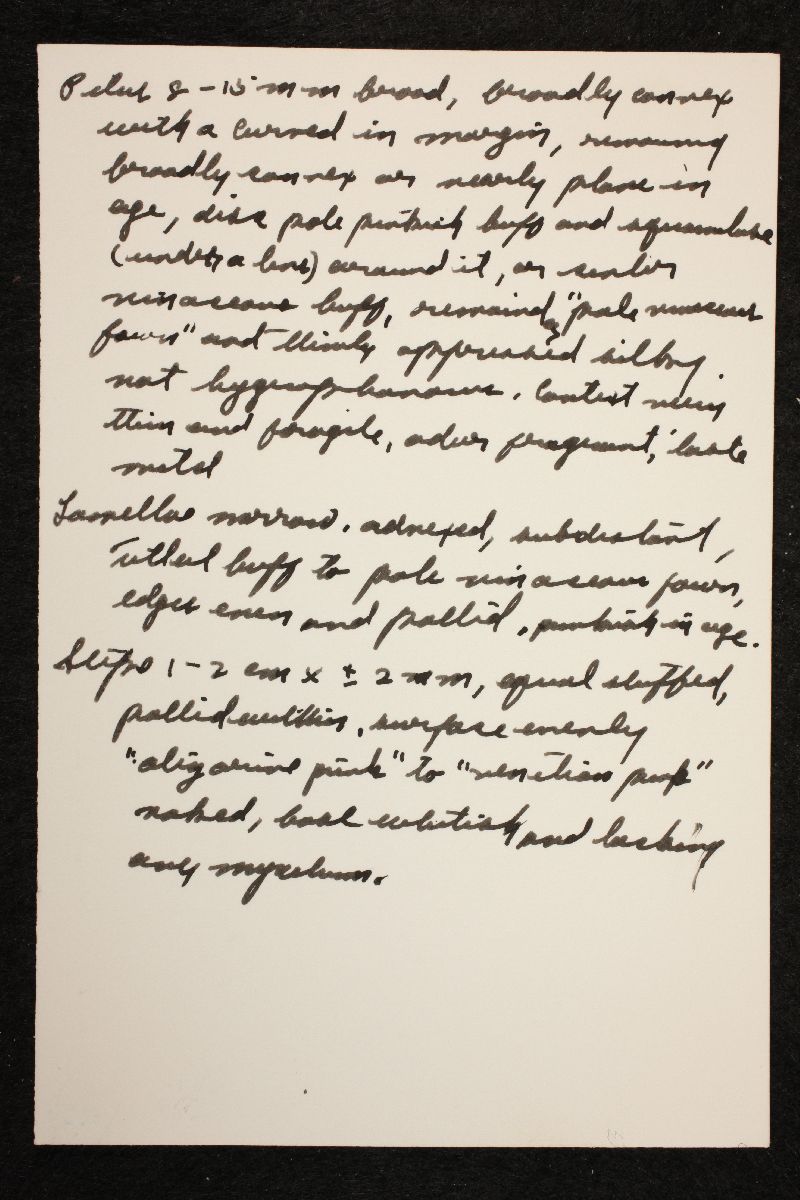 Pileus 8-15 mm broad, broadly convex
with a curved in margin, remaining
broadly convex or nearly plane in
age, disc pale pinkish buff and squamulose
(under a lens) around it, or
vinaceous buff, remainder "pale vinaceous
fawn" and thinly appressed silky,
not hygrophanous. Context very
thin and fragile, odor fragrant, taste
Lamellae narrow, adnexed, subdistant,
buff to pale vinaceous fawn,
edges even and pallid, pinkish in age.
Stipe 1-2 cm x ± 2 mm, equal stuffed,
pallid within, surface evenly
"alizarine pink" to "venetian pink"
naked, base whitish and lacking
any mycelium.